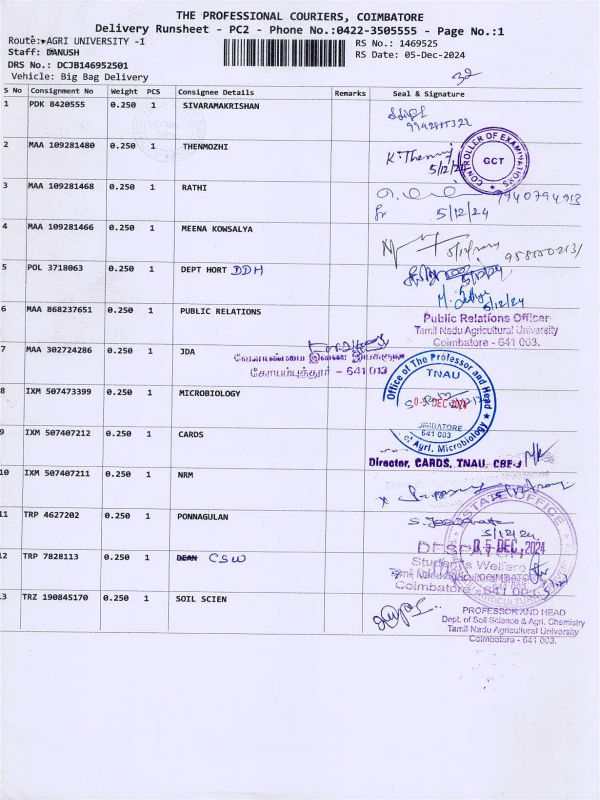 THE PROFESSIONAL COURIERS, COIMBATORE
Delivery Runsheet - PC2 - Phone No.:0422-3505555 - Page No.:1
Route: AGRI UNIVERSITY -1
RS No.: 1469525
Staff: DANUSH
RS Date: 05-Dec-2024
DRS No.: DCJB146952501
Vehicle: Big Bag Delivery
32
S No Consignment No Weight PCS Consignee Details Remarks Seal & Signature
1 PDK 8420555 0.250 1 SIVARAMAKRISHAN
2 MAA 109281480 0.250 1 THENMOZHI K. Thenmozhi
5/12/24
CONTROLLER OF EXAMINATIONS
GCT
3 MAA 109281468 0.250 1 RATHI 9940794913
for 5/12/24
4 MAA 109281466 0.250 1 MEENA KOWSALYA
5 POL 3718063 0.250 1 DEPT HORT DDH
5/12/24
6 MAA 868237651 0.250 1 PUBLIC RELATIONS
Public Relations Officer
Tamil Nadu Agricultural University
Coimbatore - 641 003.
7 MAA 302724286 0.250 1 JDA
வேளாண்மை இணை இயக்குநர்
கோயம்புத்தூர் - 641 013
Office of The Professor and Head
TNAU
8 IXM 507473399 0.250 1 MICROBIOLOGY
05 DEC 2024
COIMBATORE
641 003
of Agrl. Microbiology
9 IXM 507407212 0.250 1 CARDS
Director, CARDS, TNAU, CBE-3
10 IXM 507407211 0.250 1 NRM
11 TRP 4627202 0.250 1 PONNAGULAN
5/12/24
ESTATE OFFICE
05 DEC 2024
DESPATCH
12 TRP 7828113 0.250 1 DEAN CSW
Students Welfare
Tamil Nadu Agricultural
Coimbatore - 641 003
13 TRZ 190845170 0.250 1 SOIL SCIEN
PROFESSOR AND HEAD
Dept. of Soil Science & Agrl. Chemistry
Tamil Nadu Agricultural University
Coimbatore - 641 003.